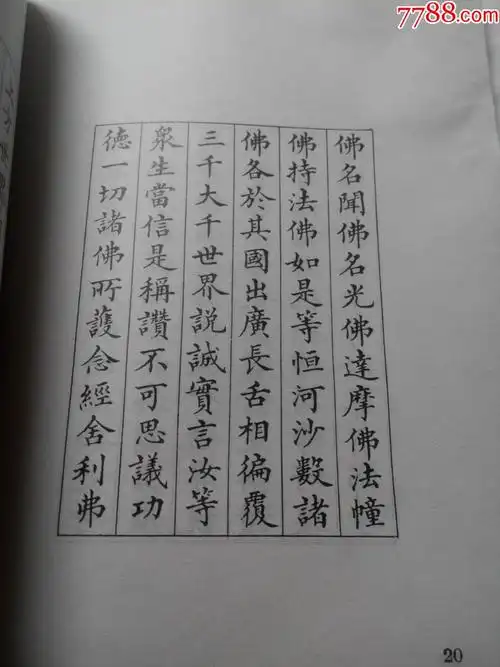 佛名聞佛名光佛達摩佛法幢
佛持法佛如是等恒河沙數諸
佛各於其國出廣長舌相徧覆
三千大千世界說誠實言汝等
衆生當信是稱讚不可思議功
德一切諸佛所護念經舍利弗
20
7788.com